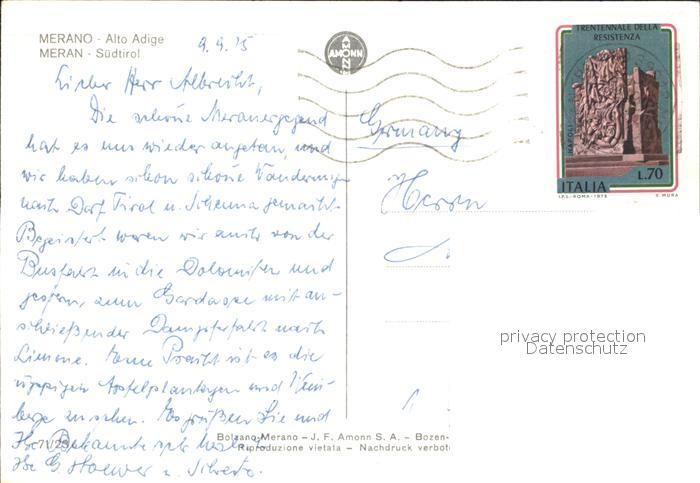 MERANO - Alto Adige
MERAN - Südtirol
9.9.75
AMONN
TRENTENNALE DELLA
RESISTENZA
NAPOLI
L.70
ITALIA
I.P.S.-ROMA-1975 E. MURA
Lieber Herr Albrecht,
Die schöne Meranergegend
hat es uns wieder angetan, und
wir haben schon schöne Wanderungen
nach Dorf Tirol u. Schenna gemacht.
Begeistert waren wir auch von der
Busfahrt in die Dolomiten und
gestern zum Gardasee mit an-
schließender Dampferfahrt nach
Limone. Eine Pracht ist es die
üppigen Apfelplantagen und Wein-
berge zu sehen. Es grüßen Sie und
Ihre Bekannte sehr herzlich
Ihre G.
Germany
Herrn
privacy protection
Datenschutz
71/25
Bolzano-Merano – J. F. Amonn S. A. – Bozen-
Riproduzione vietata – Nachdruck verbot